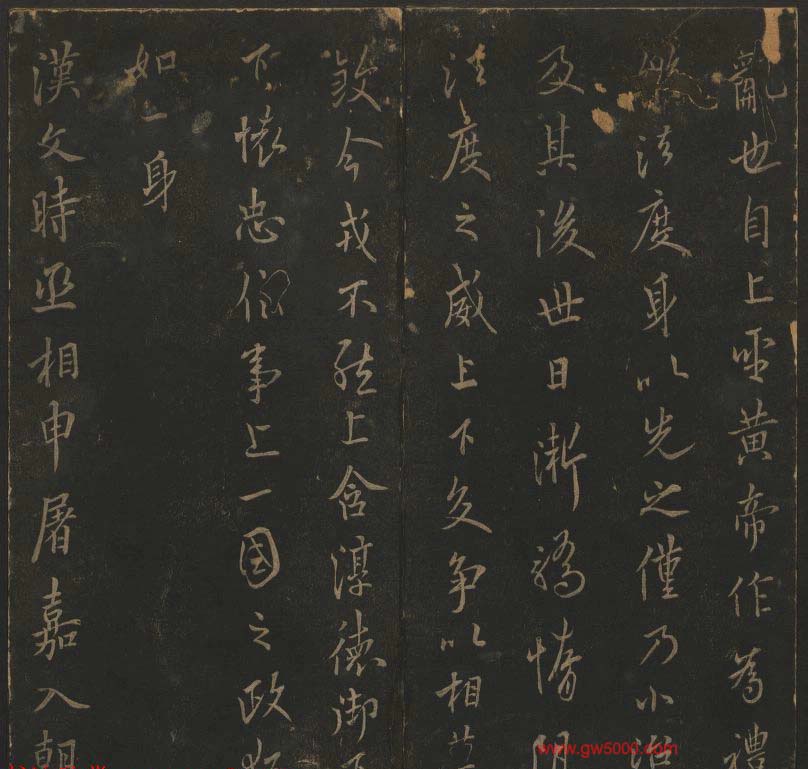 亂也自上聖黄帝作為禮
法度身以先之僅乃小治
及其後世日漸驕惰阻
法度之威上下交争以相
致令戎不然上含淳德御下
下懷忠信事上一國之政猶
如一身
漢文時丞相申屠嘉入朝
www.gw5000.com